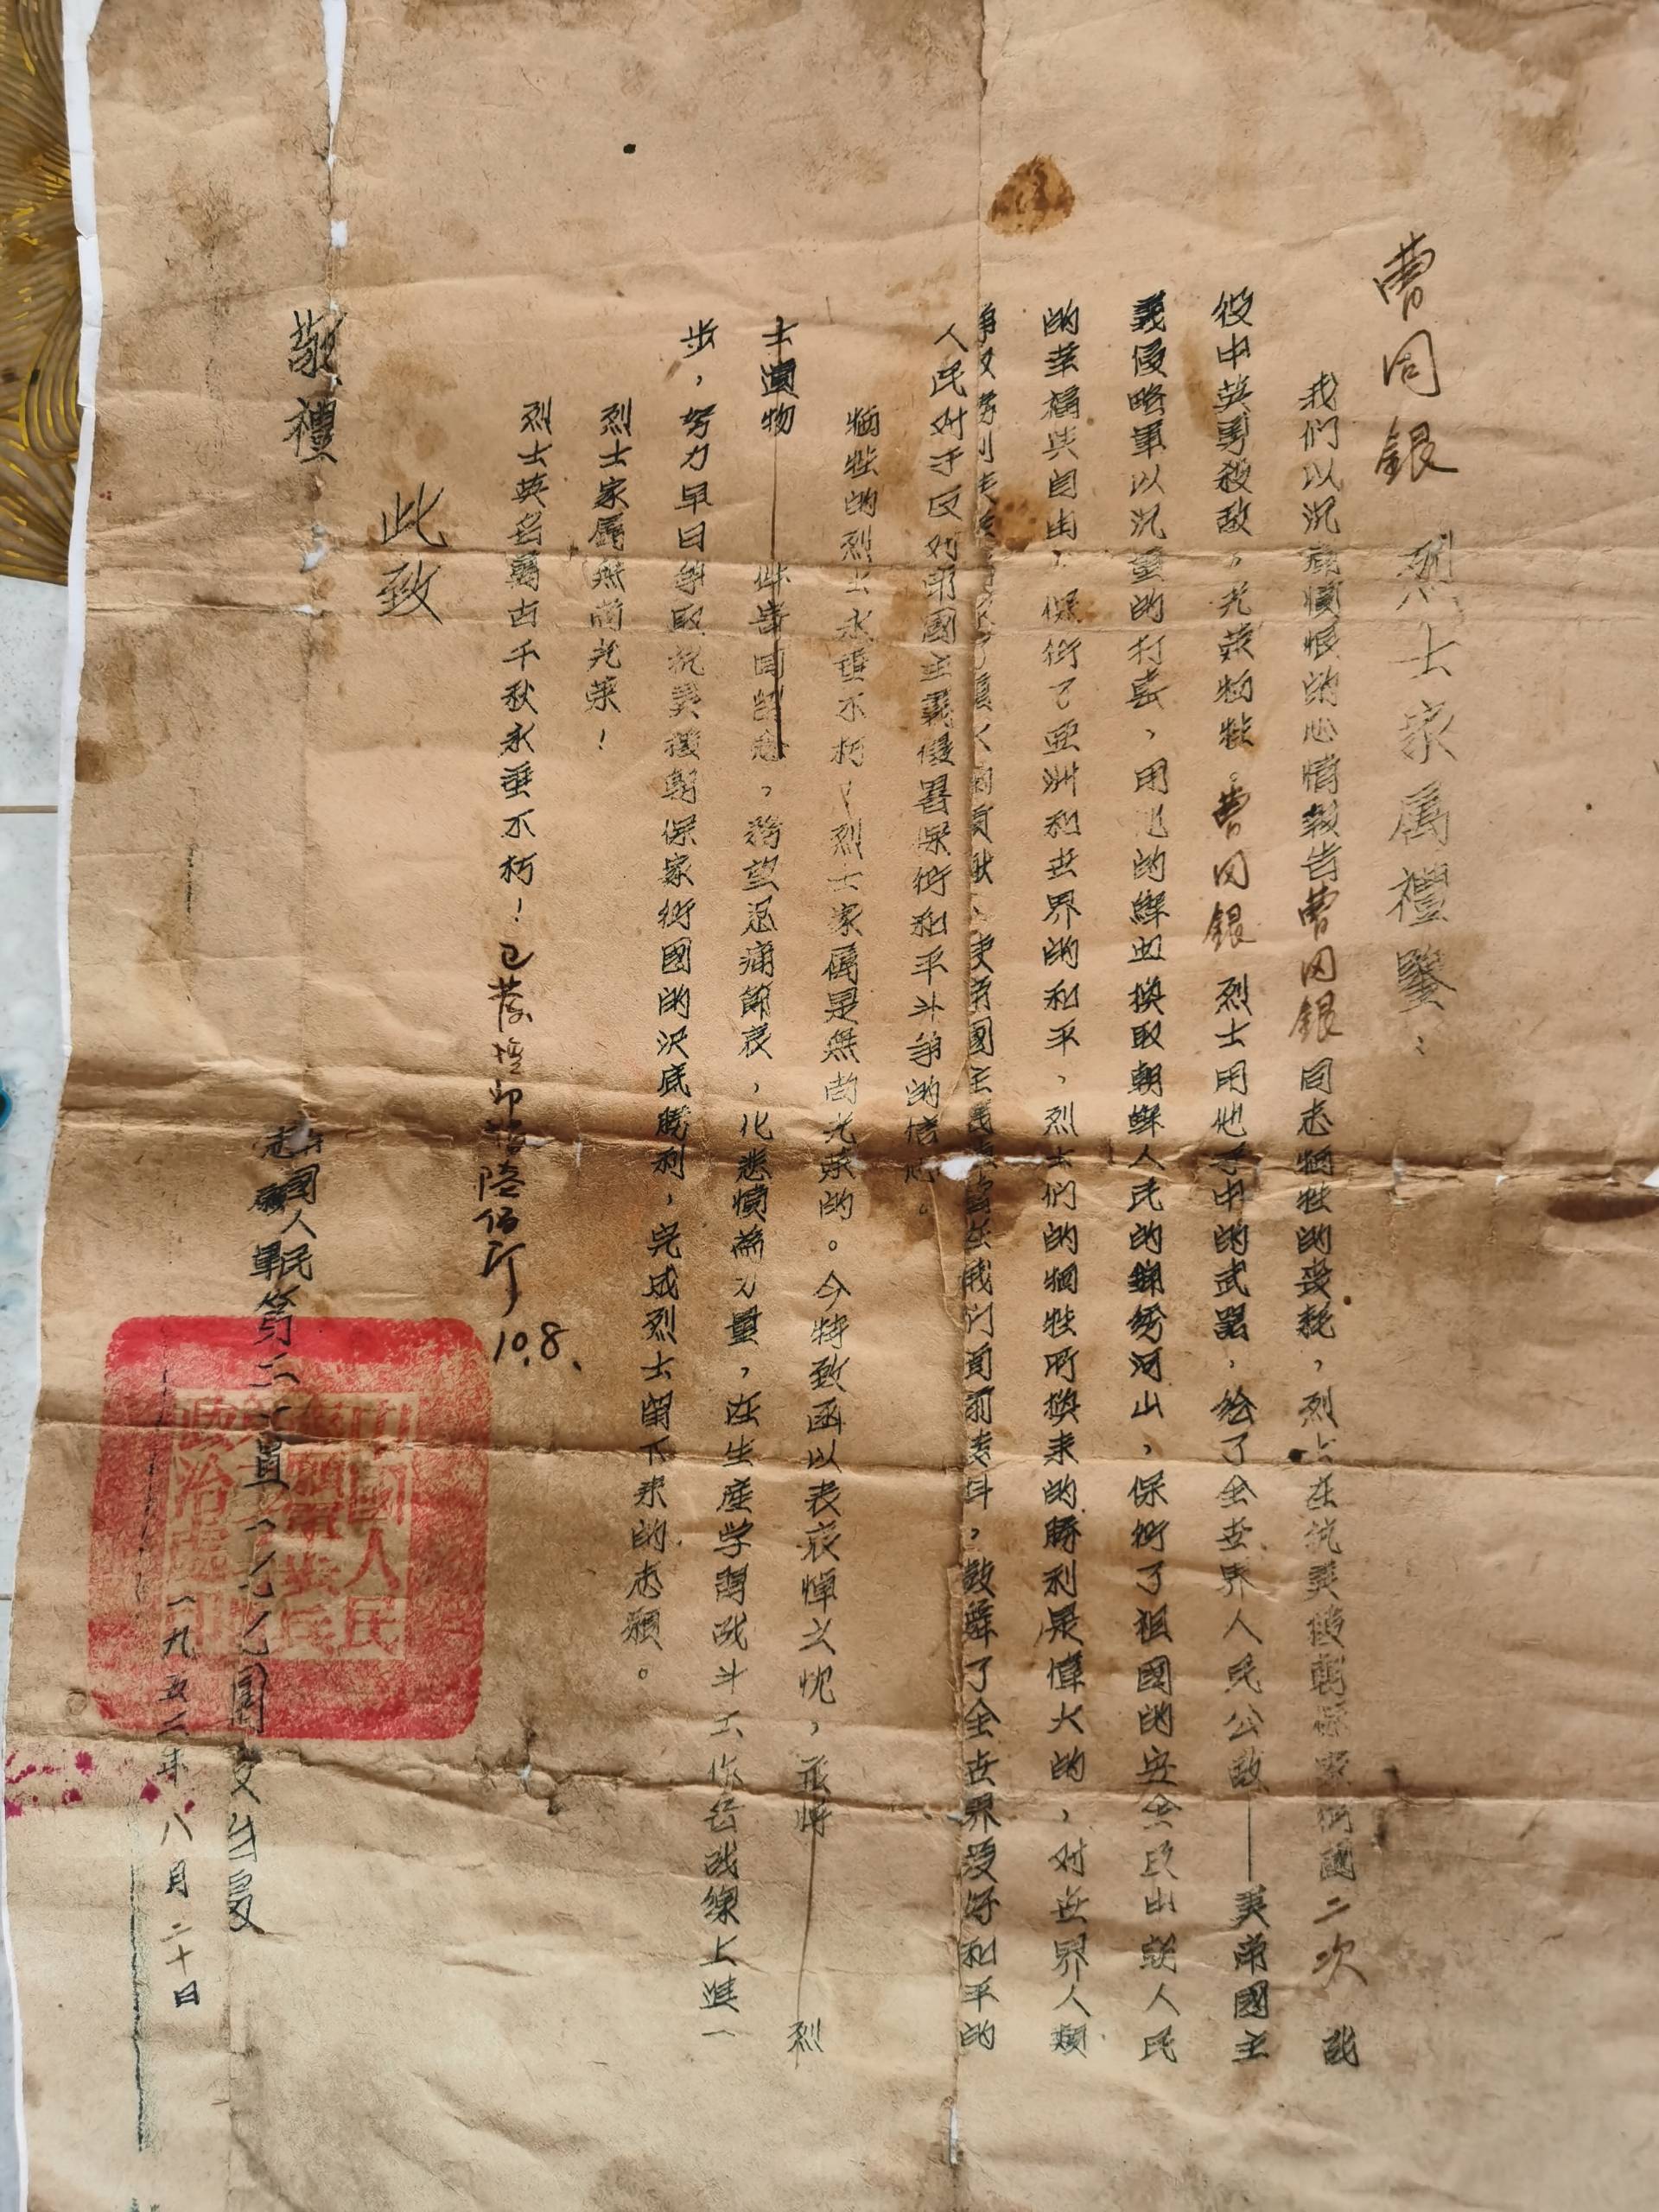 曹同银 烈士家属禮鑒：
我们以沉痛憤恨的心情報告曹同银同志牺牲的丧耗，烈士在抗美援朝保家衛國二次战
役中英勇殺敌，光荣牺牲。曹同银 烈士用他手中的武器，给了全世界人民公敌——美帝國主
義侵略軍以沉重的打击，用他的鮮血換取朝鮮人民的錦綉河山，保衛了祖國的安全
的幸福與自由，保衛了亚洲和世界的和平，烈士们的牺牲所換来的勝利是偉大的，对世界人類
争取勝利 貢献，使帝國主義 在我们面前 ，鼓舞了全世界爱好和平的
人民对于反对帝國主義侵畧保衛和平斗争的信心。
牺牲的烈士永垂不朽！烈士家属是無尚光荣的。今特致函以表哀悼之忱，并将 烈
士遺物 件寄回 念，務望忍痛節哀，化悲憤為力量，在生產学習战斗工作各战線上進一
步，努力早日争取抗美援朝保家衛國的澈底勝利，完成烈士留下来的志願。
烈士家属無尚光荣！
烈士英名萬古千秋永垂不朽！
已发 陸佰斤 10.8.
此致
敬禮
中國人民志願軍第
一九五二年八月二十日
中國人民 政治處印